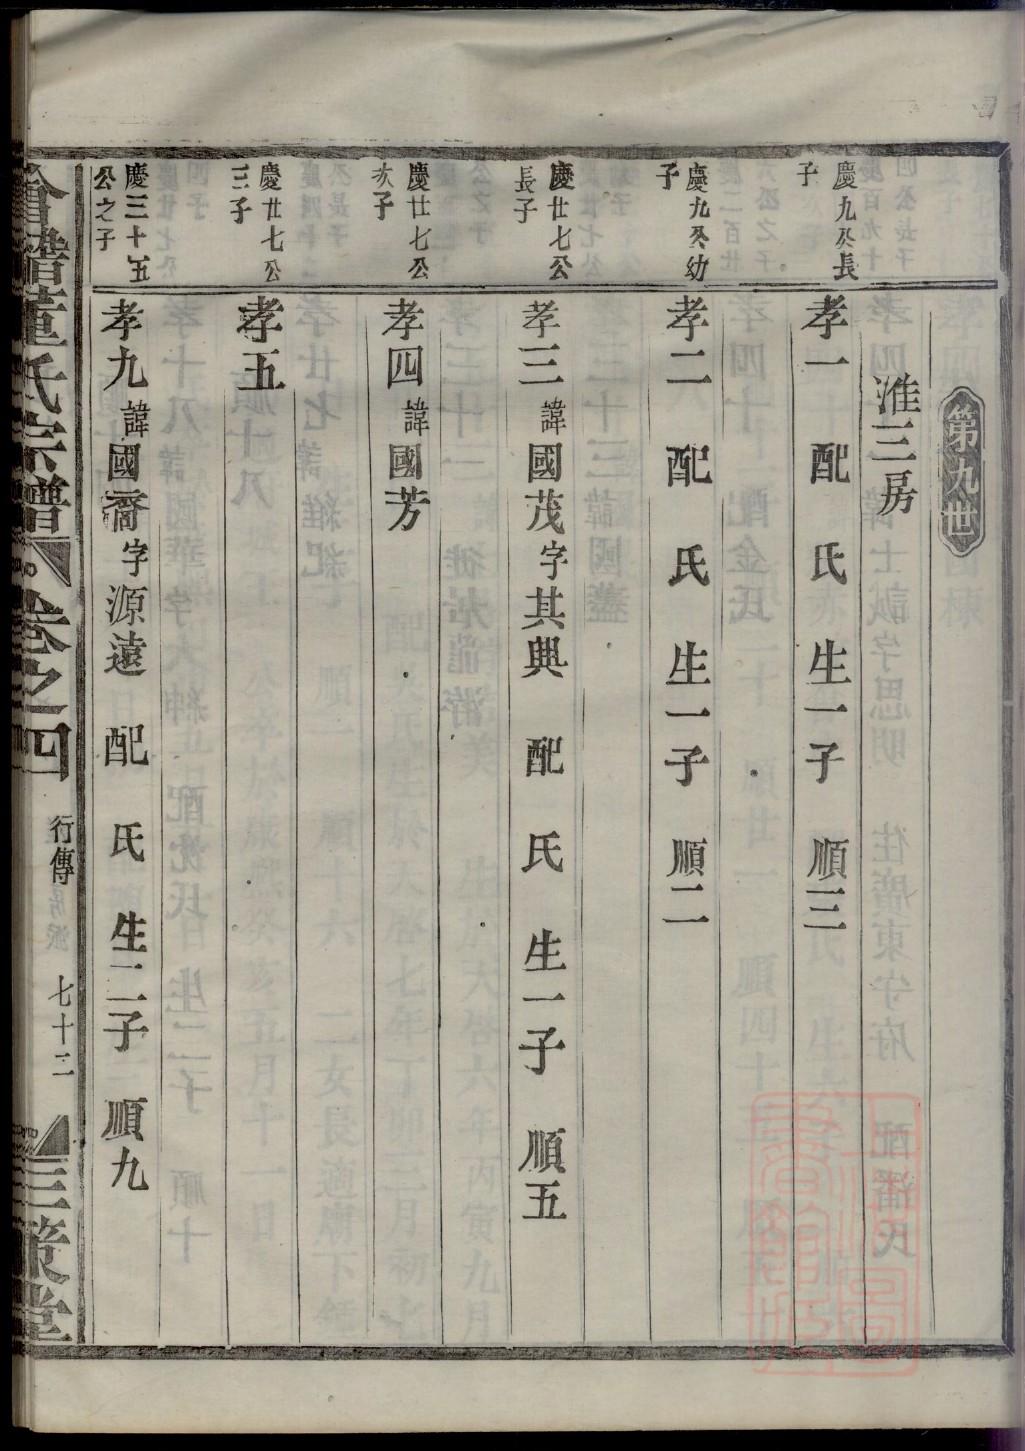 第九世
淮三房
慶九公長
子
孝一 配 氏 生一子 順三
慶九公幼
子
孝二 配 氏 生一子 順二
慶廿七公
長子
孝三 諱國茂 字其興 配 氏 生一子 順五
慶廿七公
次子
孝四 諱國芳
慶廿七公
三子
孝五
慶三十五
公之子
孝九 諱國裔 字源遠 配 氏 生二子 順九
會稽董氏宗譜 卷之四 行傳 七十三 三策堂